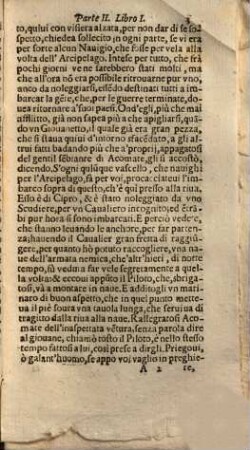 Parte II. Libro I. 3
to, quiui con visiera alzata, per non dar di se so-
spetto, chiedea sollecito in ogni parte, se vi era
per sorte alcun Nauigio, che fosse per vela alla
volta dell' Arcipelago. Intese per tutto, che frà
pochi giorni ve ne sarebbero stati molti, ma
che all'ora nõ era possibile ritrouarne pur vno,
anco da noleggiarsi, essẽdo destinati tutti a im-
barcar la gẽte, che, per le guerre terminate, do-
uea ritornare a'suoi paesi. Ond'egli, più che mai
afflitto, già non sapea più a che appigliarsi, quã-
do vn Giouanetto, il quale già era gran pezza,
che si staua quiui d'intorno sfacẽdato, a gli al-
trui fatti badando più che a'proprij, appagatosi
del gentil sẽbiante di Acomate, gli si accostò,
dicendo, S'ogni qualũque vascello, che nauighi
per l'Arcipelago, fà per voi, proca ciateui l'im-
barco sopra di questo, ch'è qui presso alla riua.
Esso è di Cipro, & è stato noleggiato da vno
Scudiere, per vn Caualiero incognito, ed ẽtrã-
bi pur hora si sono imbarcati. E perciò vede'e,
che stanno leuando le anchore, per far parten-
za; hauendo il Caualier gran fretta di raggiũ-
gere, per quanto hò potuto raccogliere, vna na-
ue dell'armata nemica, che'altr'hieri, di notte
tempo, sù vedma far vele segretamente a quel-
la volta: & eccoui appũto il Piloto, che, sbriga-
tosi, và a montare in naue. E additogli vn mari-
naro di buon aspetto, che in quel punto mette-
ua il piè soura vna tauola lunga, che seruiua di
tragitto dalla riua alla naue. Rallegratosi Aco-
mate dell'inaspettata vẽtura, senza parola dire
al giouane, chiamò tosto il Piloto, e nello stesso
tempo fattosi a lui, così prese a dirgli. Priegoui,
ò galant'huomo, se appo voi vaglio in preghie-
A 2 re,